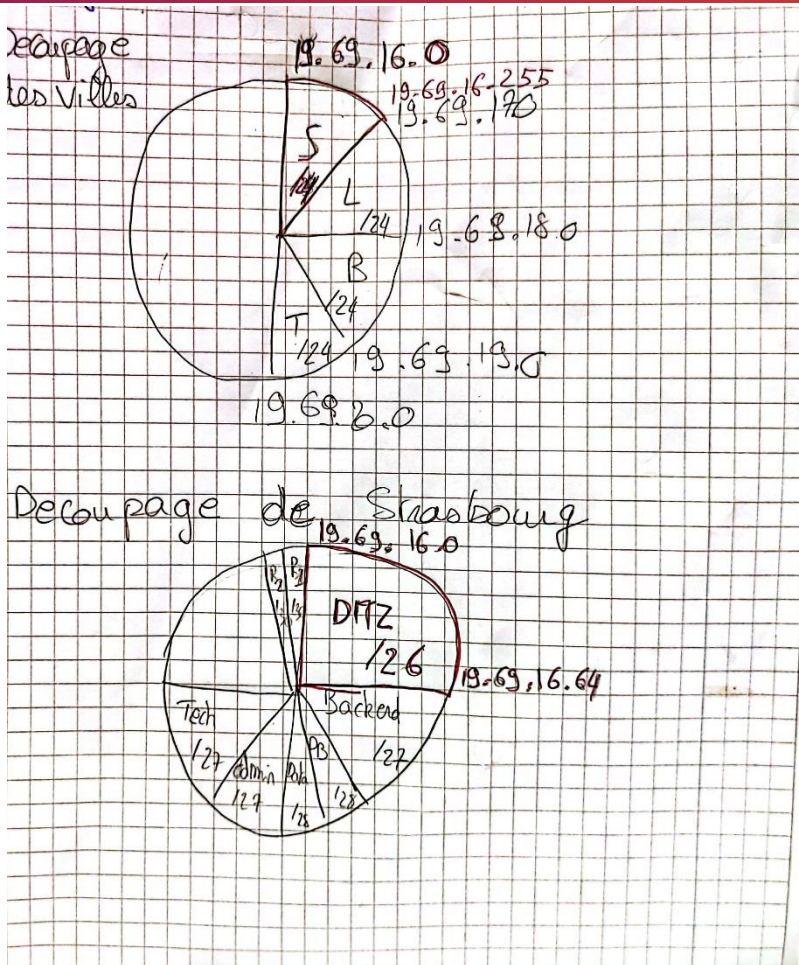 Decoupage
des Villes
19.69.16.0
19.69.16.255
19.69.170
S
/24
L
/24
19.69.18.0
B
/24
T
/24
19.69.19.0
Decoupage de Strasbourg
19.69.16.0
DMZ
/26
19.69.16.64
Backend
/27
Tech
/27
admin
/27
/28
PB
/28